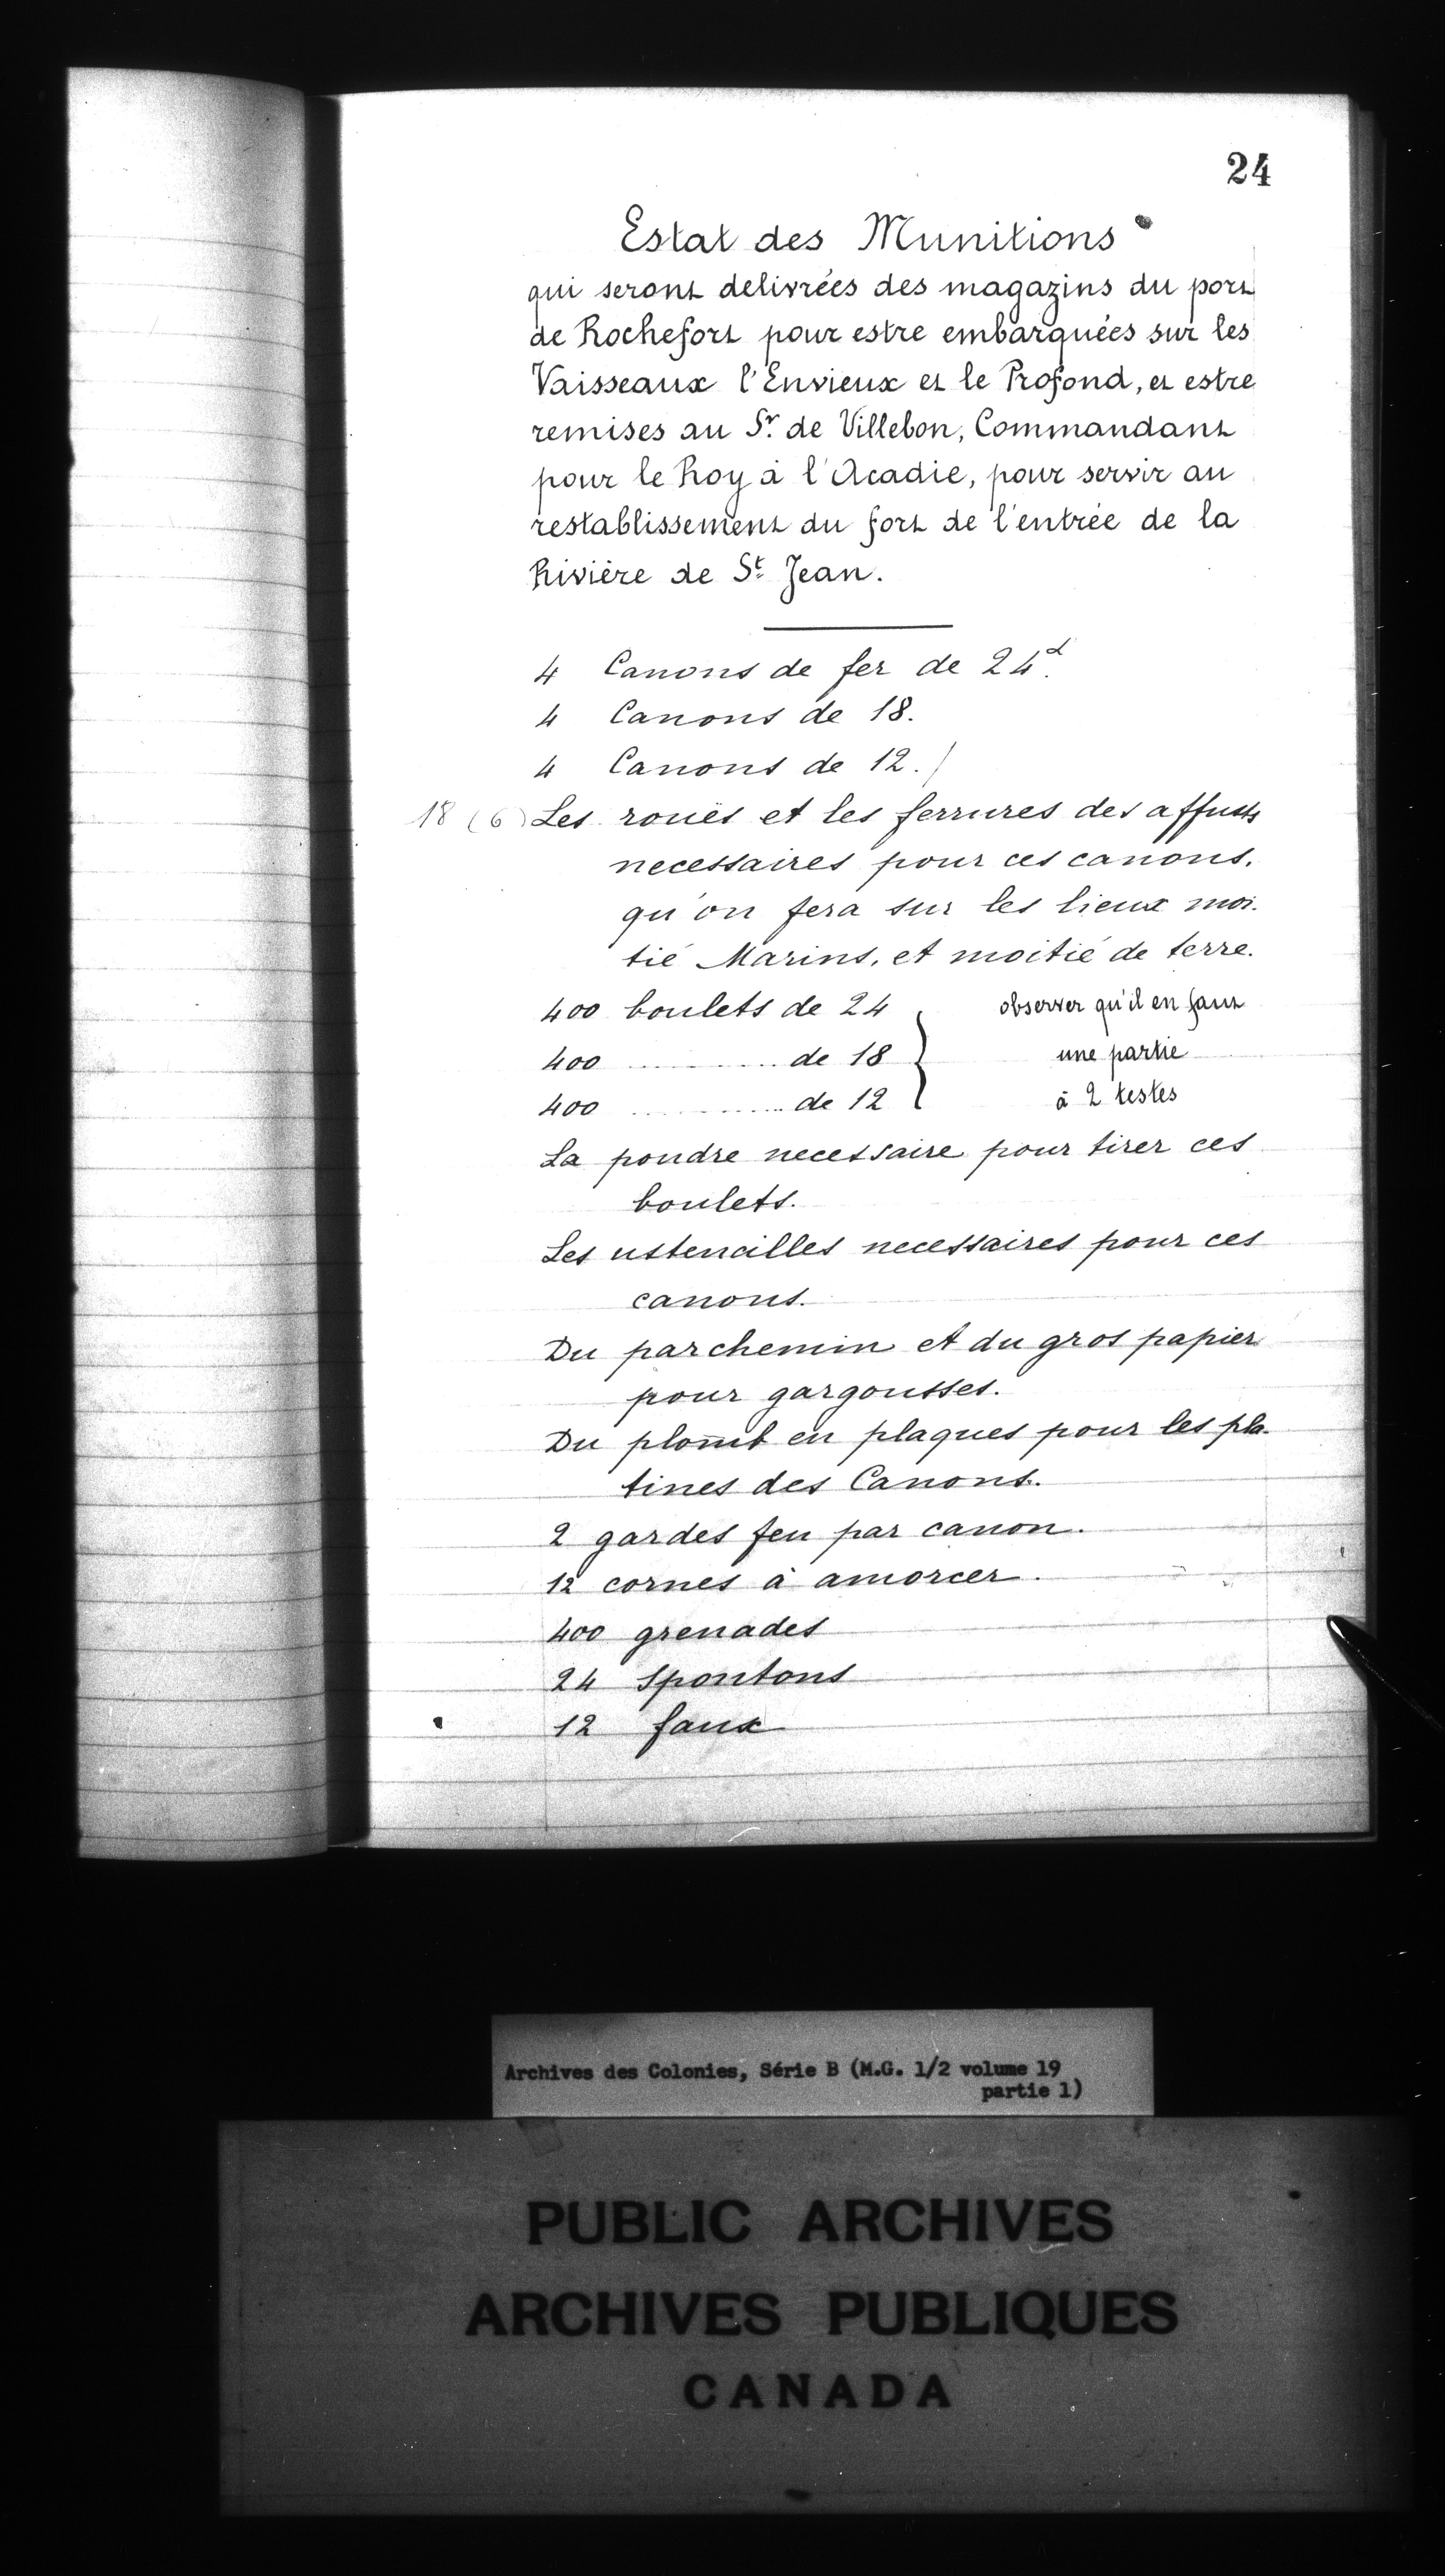 24
Estat des Munitions
qui seront delivrées des magazins du port
de Rochefort pour estre embarquées sur les
Vaisseaux l'Envieux et le Profond, et estre
remises au Sr. de Villebon, Commandant
pour le Roy à l'Acadie, pour servir au
restablissement du fort de l'entrée de la
Rivière de St. Jean.
4 Canons de fer de 24d.
4 Canons de 18.
4 Canons de 12./
18 (6) Les rouës et les ferrures des affusts
necessaires pour ces canons,
qu'on fera sur les lieux moi-
tié Marins, et moitié de terre.
400 boulets de 24 } observer qu'il en faut
400 ............ de 18 } une partie
400 ............ de 12 } à 2 testes
La poudre necessaire pour tirer ces
boulets.
Les ustencilles necessaires pour ces
canons.
Du parchemin et du gros papier
pour gargousses.
Du plomb en plaques pour les pla-
tines des Canons.
2 gardes feu par canon.
12 cornes à amorcer.
400 grenades
24 Spontons
12 faux
Archives des Colonies, Série B (M.G. 1/2 volume 19
partie 1)
PUBLIC ARCHIVES
ARCHIVES PUBLIQUES
CANADA